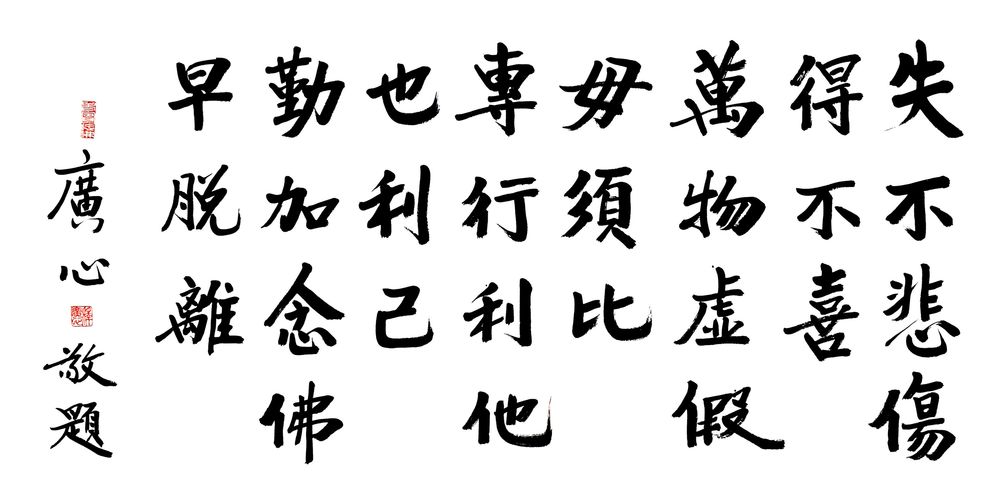 失不悲傷
得不喜
萬物虛假
毋須比
專行利他
也利己
勤加念佛
早脫離
廣心敬題